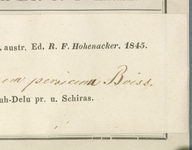 austr. Ed. R. F. Hohenacker. 1845.
persicum Boiss.
uh-Delu pr. u. Schiras.